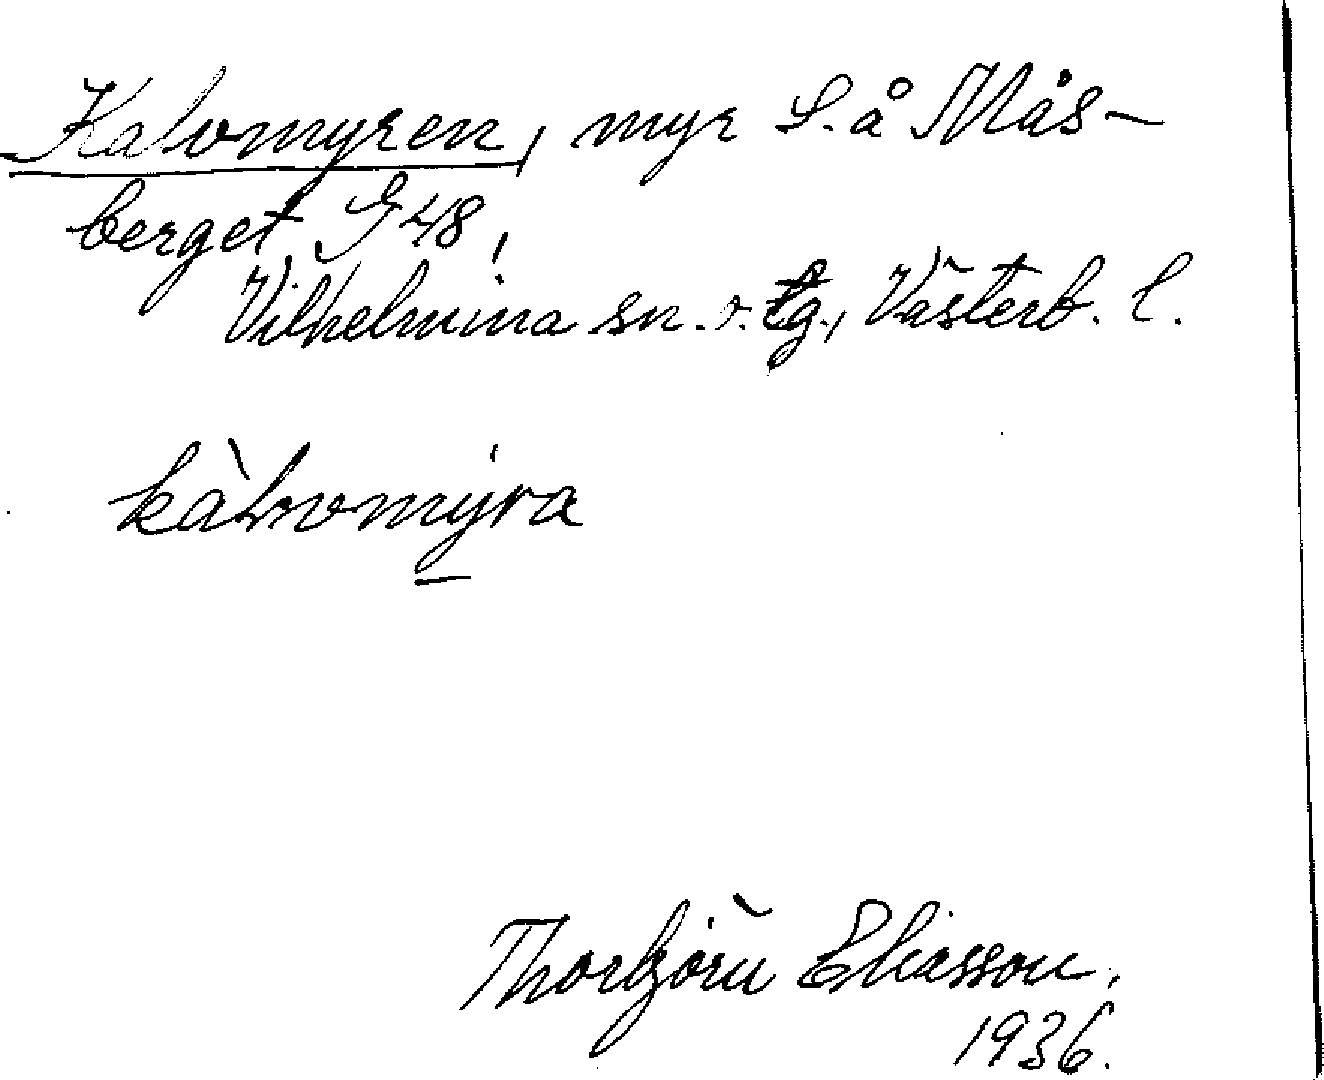 Kalvmyren, myr S. å Mås-
berget G48,
Vilhelmina sn. o. tg., Västerb. l.
kàlvmýra
Thorbjörn Eliasson.
1936.